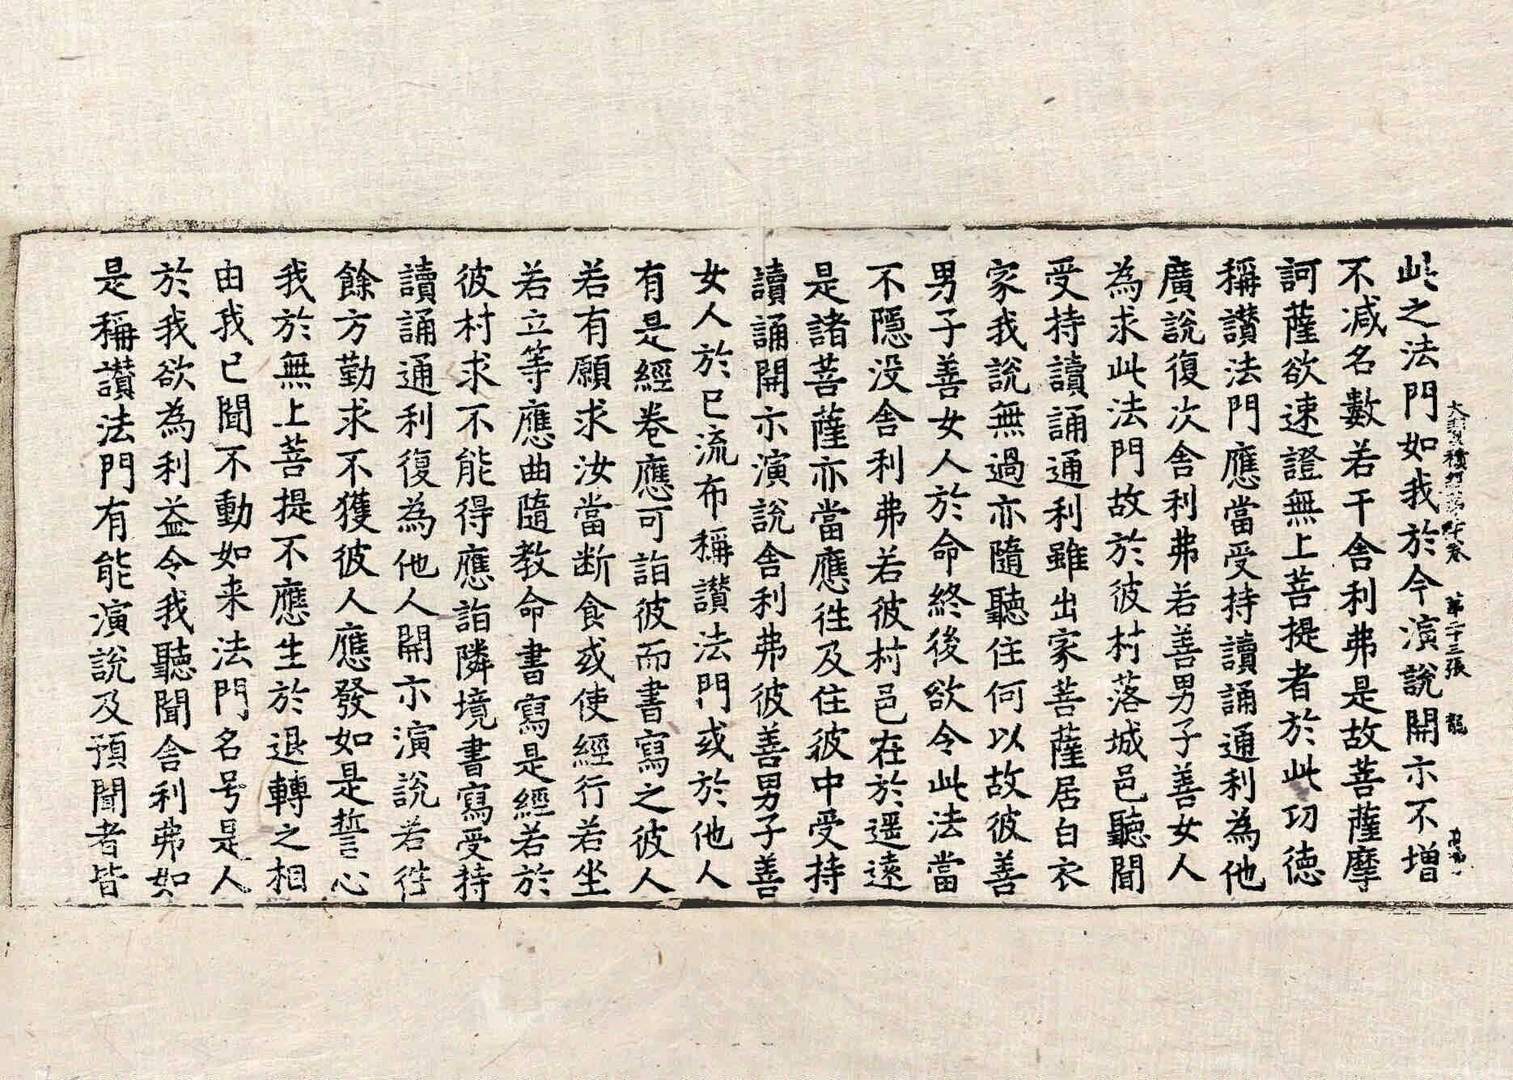 此之法門如我於今演說開示不增
大寶積經第二十卷 第二十三張 龍
不减名數若干舍利弗是故菩薩摩
訶薩欲速證無上菩提者於此功德
稱讃法門應當受持讀誦通利為他
廣說復次舍利弗若善男子善女人
為求此法門故於彼村落城邑聽聞
受持讀誦通利雖出家菩薩居白衣
家我說無過亦隨聽住何以故彼善
男子善女人於命終後欲令此法當
不隱没舍利弗若彼村邑在於遥遠
是諸菩薩亦當應徃及住彼中受持
讀誦開示演說舍利弗彼善男子善
女人於已流布稱讃法門或於他人
有是經卷應可詣彼而書寫之彼人
若有願求汝當断食或使經行若坐
若立等應曲隨教命書寫是經若於
彼村求不能得應詣隣境書寫受持
讀誦通利復為他人開示演說若徃
餘方勤求不獲彼人應發如是誓心
我於無上菩提不應生於退轉之相
由我已聞不動如来法門名号是人
於我欲為利益令我聽聞舍利弗如
是稱讃法門有能演說及預聞者皆